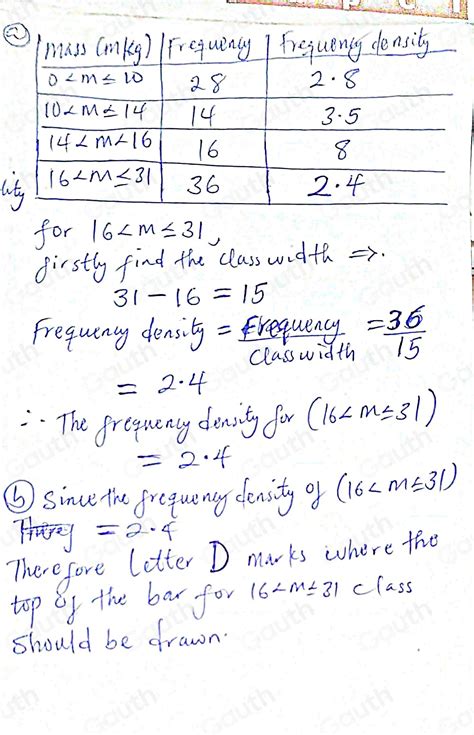 (a)
mass (m/kg) Frequency Frequency density
0 < m ≤ 10 28 2.8
10 < m ≤ 14 14 3.5
14 < m < 16 16 8
16 < m ≤ 31 36 2.4
lity
for 16 < m ≤ 31,
firstly find the class width ⇒.
31 - 16 = 15
Frequency density = Frequency / Class width = 36 / 15
= 2.4
∴ The frequency density for (16 < m ≤ 31)
= 2.4
(b) Since the frequency density of (16 < m ≤ 31)
= 2.4
Therefore letter D marks where the
top of the bar for 16 < m ≤ 31 class
should be drawn.